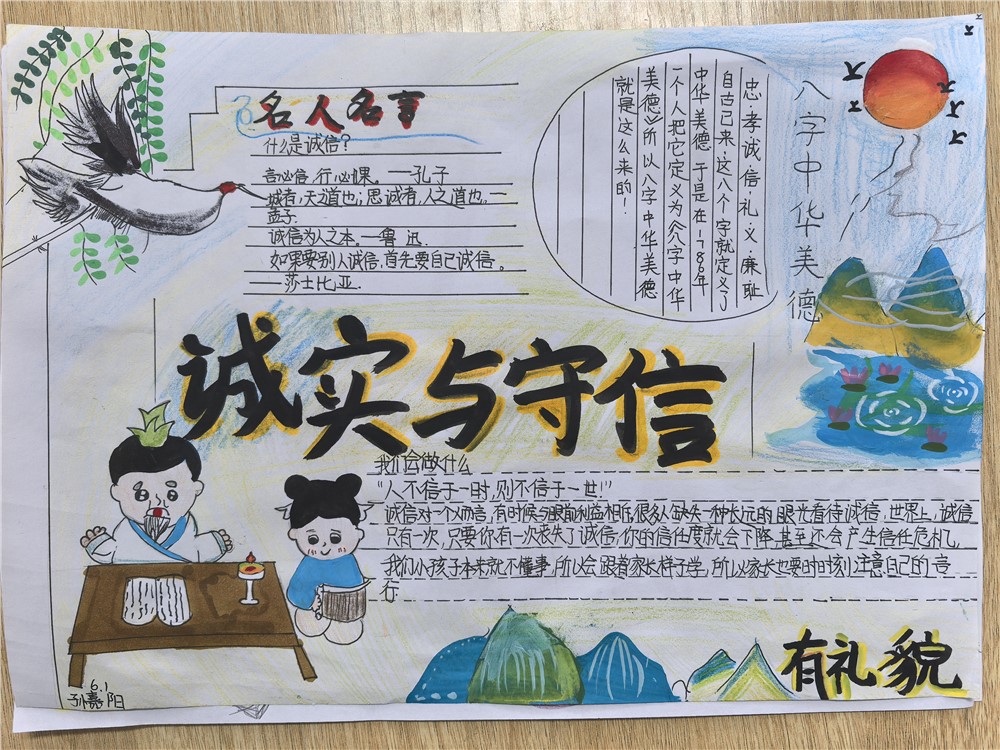 名人名言
什么是诚信?
言必信,行必果。一孔子
城者,天之道也;思诚者,人之道也,一
孟子.
诚信为人之本。一鲁 迅.
如果要别人诚信,首先要自己诚信。
——莎士比亚.
忠·孝诚·信·礼·义·廉·耻
自古已来·这八个字就定义了
中华美德 于是在1786年
一个人把它定义为《八字中华
美德》所以八字中华美德
就是这么来的!
八字中华美德
诚实与守信
我们会做什么
“人不信于一时,则不信于一世!”
诚信对一个人而言,有时候与眼前利益相

很多人缺失一种长远的眼光看待诚信,世界上,诚信
只有一次,只要你有一次丧失了诚信,你的信任度就会下降,甚至还会产生信任危机,
我们小孩子本来就不懂事,所以会跟着家长样子学,所以家长也要时时刻刻注意自己的言
行
有礼貌
6.1
孙嘉阳